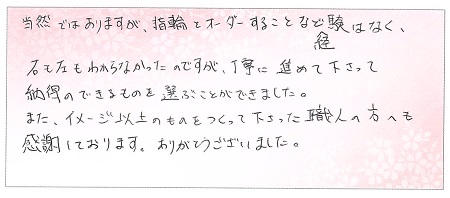 当然ではありますが、指輪をオーダーすることなど経験はなく、
右も左もわからなかったのですが、丁寧に進めて下さって
納得のできるものを選ぶことができました。
また、イメージ以上のものをつくって下さった職人の方へも
感謝しております。ありがとうございました。